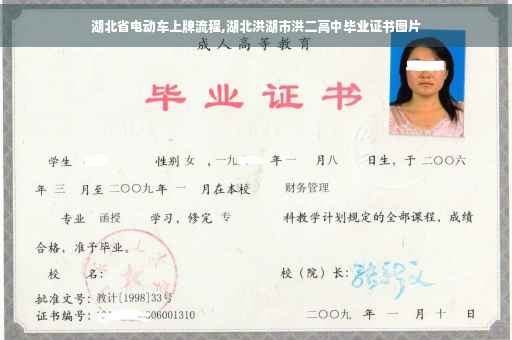 湖北省电动车上牌流程,湖北洪湖市洪二高中毕业证书图片
成人高等教育
毕业证书
学生 性别 女 ,一九 年 一 月八 日生，于二〇〇六
年 三 月至二〇〇九年 一 月在本校 财务管理
专业 函授 学习，修完 专 科教学计划规定的全部课程，成绩
合格，准予毕业。
校 名： 校（院）长：
批准文号：教计[1998]33号
证书编号： 06001310 二〇〇九 年 一 月 十 日